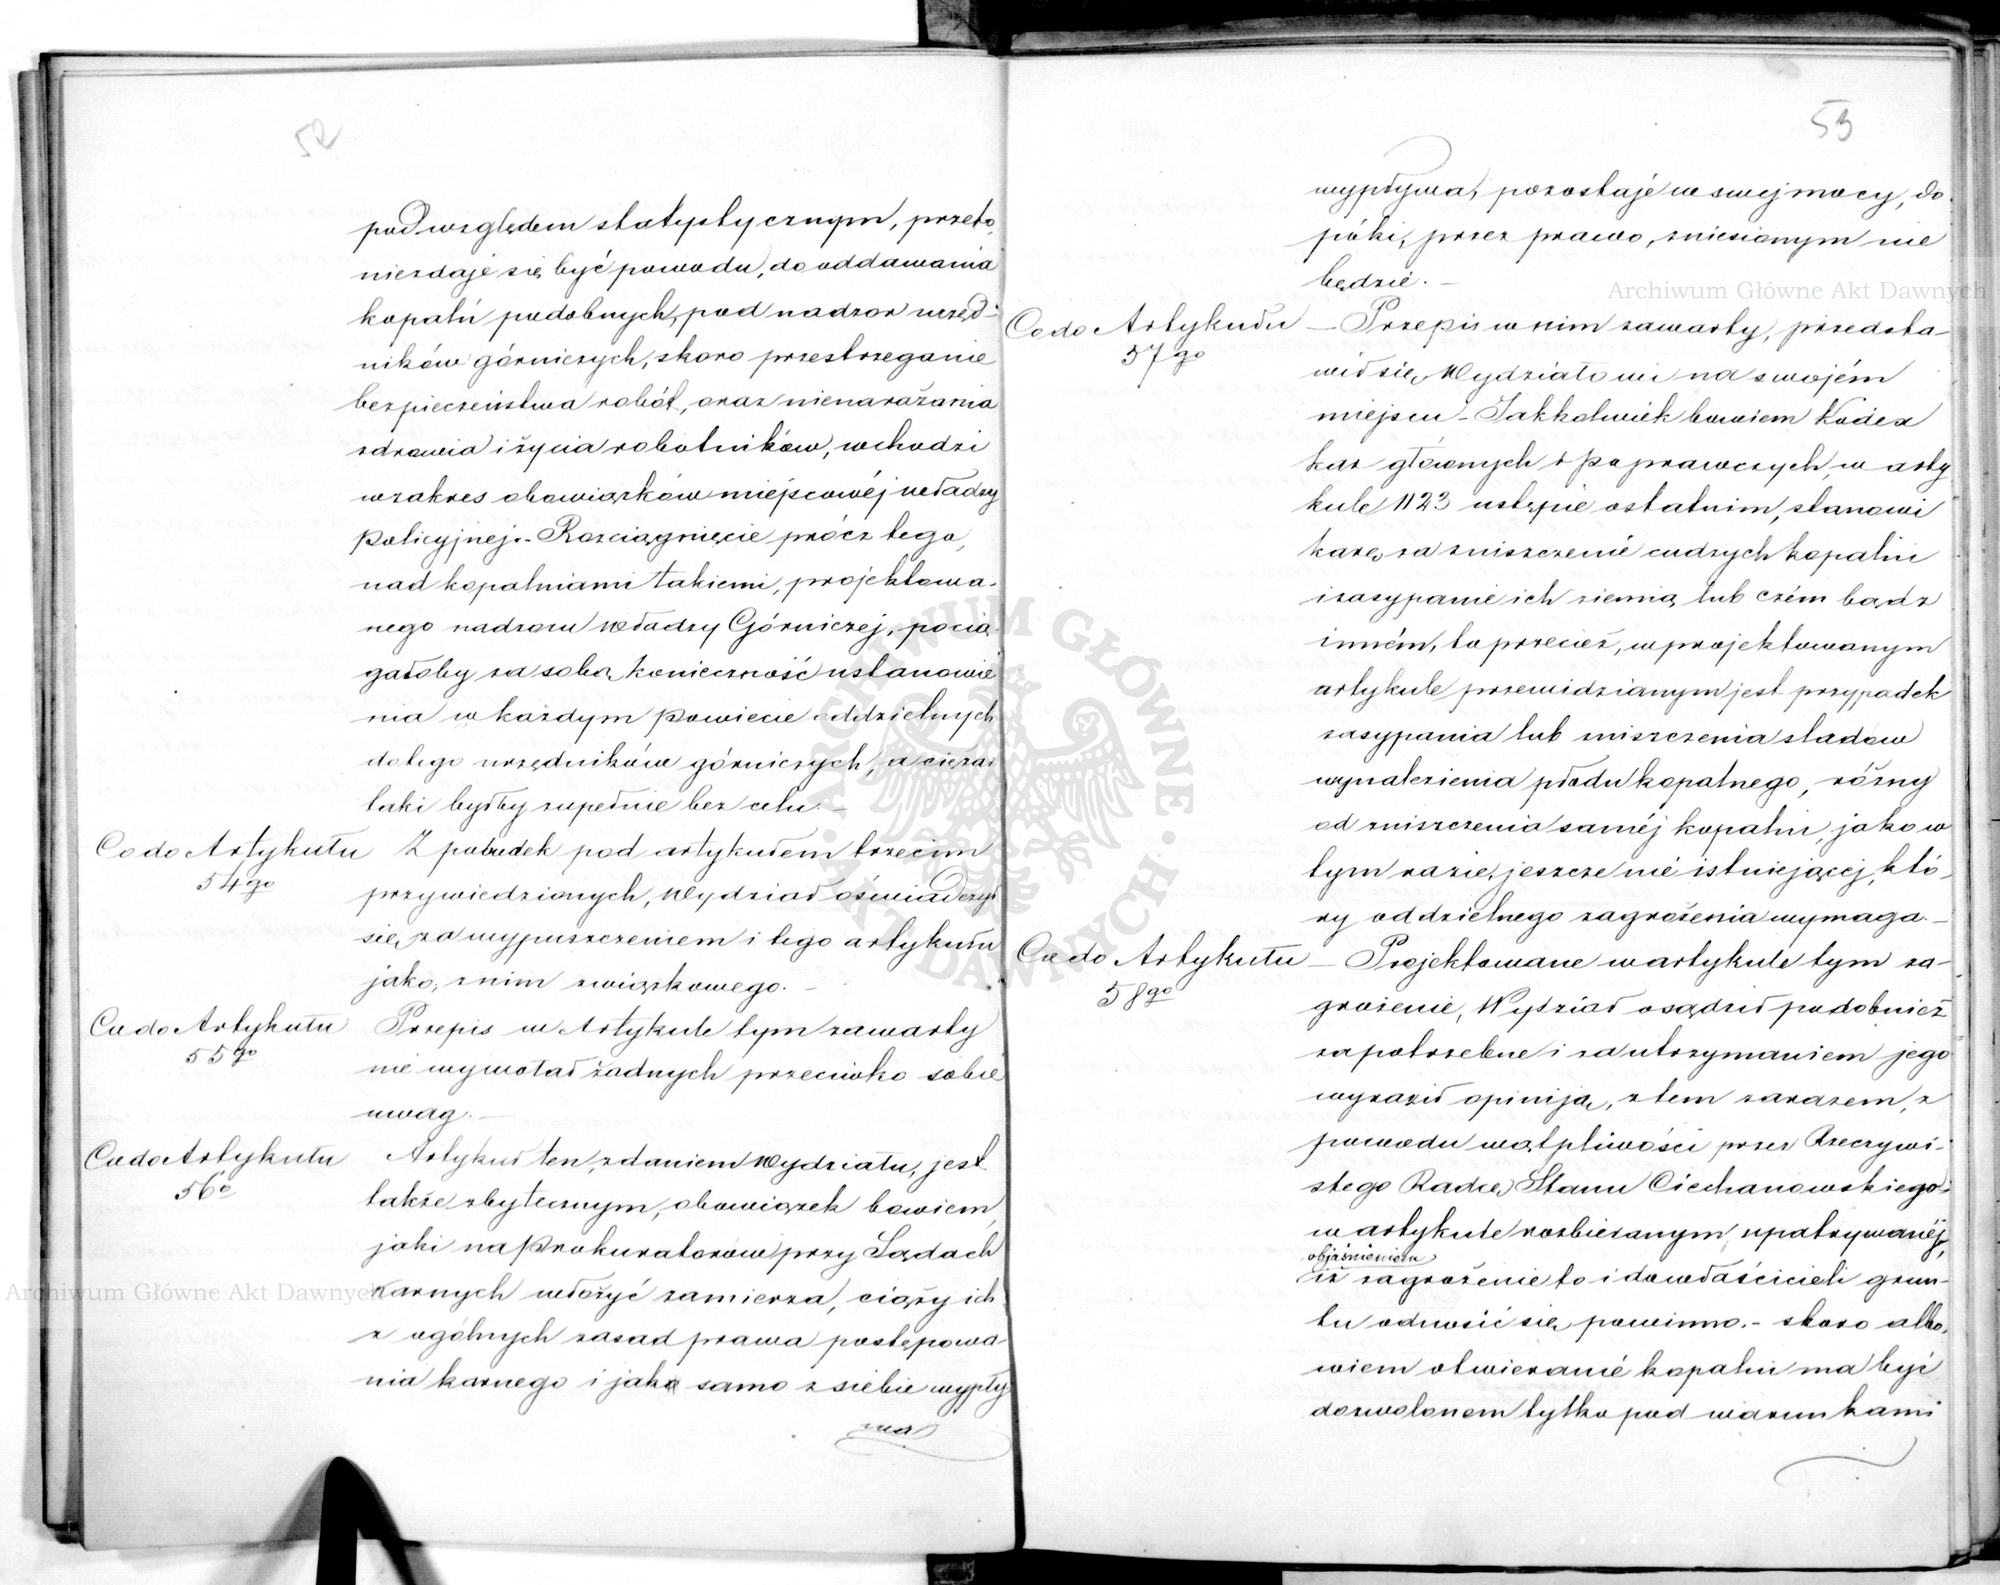 52
pod względem statystycznym, przeto,
niezdaje się być powodu, do oddawania
kopalń podobnych, pod nadzor urzęd-
ników górniczych, skoro przestrzeganie
bezpieczeństwa robót, oraz nienarażania
zdrowia i życia robotników, wchodzi
w zakres obowiązków miejscowéj władzy
policyjnej.- Rozciągnięcie prócz tego,
nad kopalniami takiemi, projektowa-
nego nadzoru władzy Górniczej, pocią-
gałoby za sobą, konieczność ustanowie
nia w każdym powiecie oddzielnych
do tego urzędników górniczych, a ciężar
taki byłby zupełnie bez celu.-
Co do Artykułu
54go
Z pobudek pod artykułem trzecim
przywiedzionych, Wydział oświadczył
się, za wypuszczeniem i tego artykułu
jako, z nim związkowego.-
Co do Artykułu
55go
Przepis w Artykule tym zawarty
nie wywołał żadnych przeciwko sobie
uwag.-
Co do Artykułu
56o
Artykuł ten, zdaniem Wydziału, jest
także zbytecznym, obowiązek bowiem,
jaki na Prokuratorów przy Sądach
Karnych włożyć zamierza, ciąży ich
z ogólnych zasad prawa postępowa-
nia karnego i jako samo z siebie wypły
wa
53
wypływa, pozostaje w swej mocy, do
póki, przez prawo, zniesionym nie
będzie.-
Co do Artykułu
57go
- Przepis w nim zawarty, przedsta-
wił się, Wydziałowi na swojém
miejscu - Jakkolwiek bowiem Kodex
kar głównych i poprawczych, w arty
kule 1123 ustępie ostatnim, stanowi
karę, za zniszczenie cudzych kopalni
i zasypanie ich ziemią, lub czém bądz
inném, to przecież, w projektowanym
artykule przewidzianym jest przypadek
zasypania lub zniszczenia śladów
wynalezienia płodu kopalnego, różny
od zniszczenia saméj kopalni, jako w
tym razie, jeszcze nie istniejącej, któ-
ry oddzielnego zagrożenia wymaga.-
Co do Artykułu
58go
- Projektowane w artykule tym za-
grożenie, Wydział osądził podobnież
za potrzebne i za utrzymaniem jego
wyraził opiniją, z tem zarazem, z
powodu wątpliwości przez Rzeczywi-
stego Radcę, Stanu Ciechanowskiego,
w artykule rozbieranym, upatrywanéj,
objaśnieniem
iż zagrożenie to i do właścicieli grun-
tu odnosić się, powinno.- skoro albo-
wiem otwieranie kopalni ma być
dozwolonem tylko pod warunkami
Archiwum Główne Akt Dawnych
Archiwum Główne Akt Dawnych
ARCHIWUM GŁÓWNE · AKT DAWNYCH ·